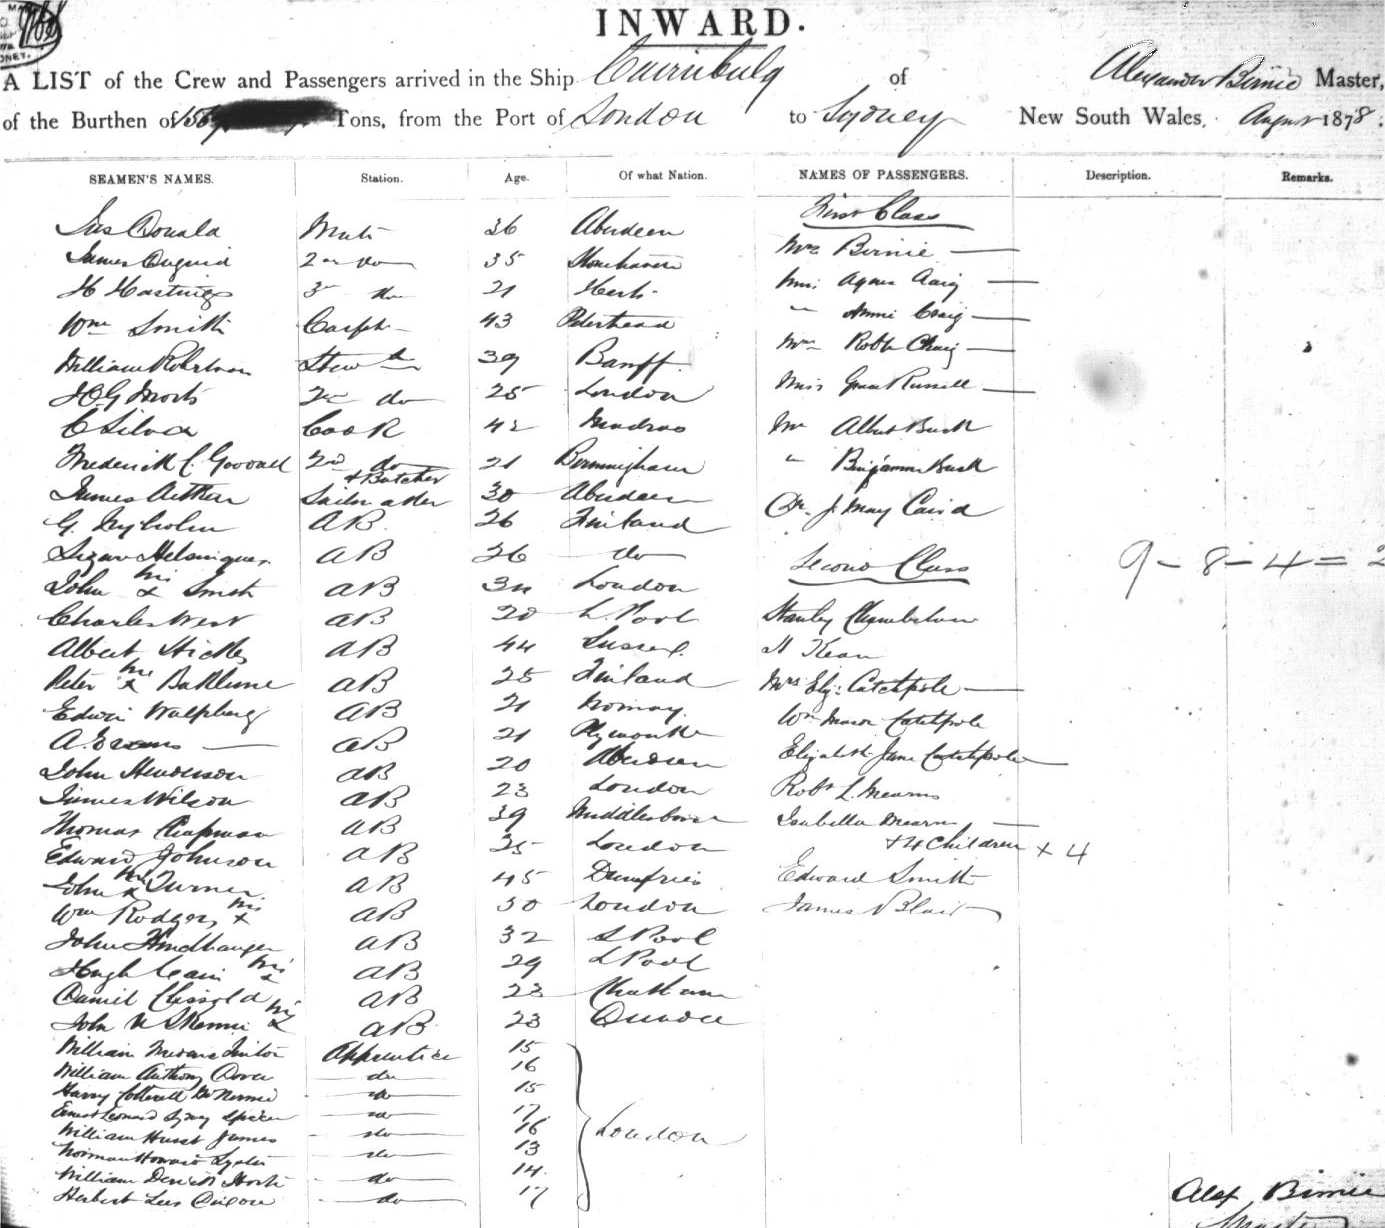 INWARD.
A LIST of the Crew and Passengers arrived in the Ship Cairnbulg of Alexander Birnie Master,
of the Burthen of Tons, from the Port of London to Sydney New South Wales, August 1878.
SEAMEN'S NAMES. Station. Age. Of what Nation. NAMES OF PASSENGERS. Description. Remarks.
First Class
Jas Donald Mate 36 Aberdeen
Mrs Birnie
James Duguid 2nd do 35 Stonehaven
Miss Agnes Craig
H Hastings 3rd do 21 Herts
" Annie Craig
Wm Smith Carptr 43 Peterhead
Mrs Robt Craig
William Robertson Stewd 39 Banff
Miss Grace Russell
H G Morts 2nd do 25 London
C Silva Cook 42 Madras
Mr Albert Bush
Frederick C. Goodall 2nd do 21 Birmingham
+ Butcher
" Benjamin Bush
James Aitken Sailmaker 30 Aberdeen
Dr. J. May Caird
G. Nyholm AB. 26 Finland
AB 26 do
Second Class
9 - 8 - 4 = 2
his
John x Smith AB London
Charles West AB 20 L'Pool
Stanley Chamberlain
Albert Hickley AB 44 Sussex
H Kean
his
Peter x AB 25 Finland
Mrs Eliz. Catchpole
Edwin AB 21 Norway
Wm Mason Catchpole
A. Evans AB 21 Plymouth
Elizabeth Jane Catchpole
John Henderson AB 20 Aberdeen
James Wilson AB 23 London
Robt L. Mearns
Thomas Chapman AB 39 Middlesboro
Isabella Mearns
+ 4 Children + 4
Edward Johnson AB 25 London
his
John x Turner AB 45 Dumfries
Edward Smith
his
Wm Rodgers x AB 30 London
James Blair
John AB 32 L Pool
his
Hugh Cain x AB 29 L Pool
Daniel Clissold AB 23 Chatham
his
John x AB 23 Dundee
William Apprentice 15
William Anthony Dover do 16
Harry Cotterell do 15
Ernest Leonard Sydney Spicer do 17
William Hurst James do 16 London
Norman Howard Lyster do 13
William do 14
Herbert Lees do 17
Alex Birnie
Master